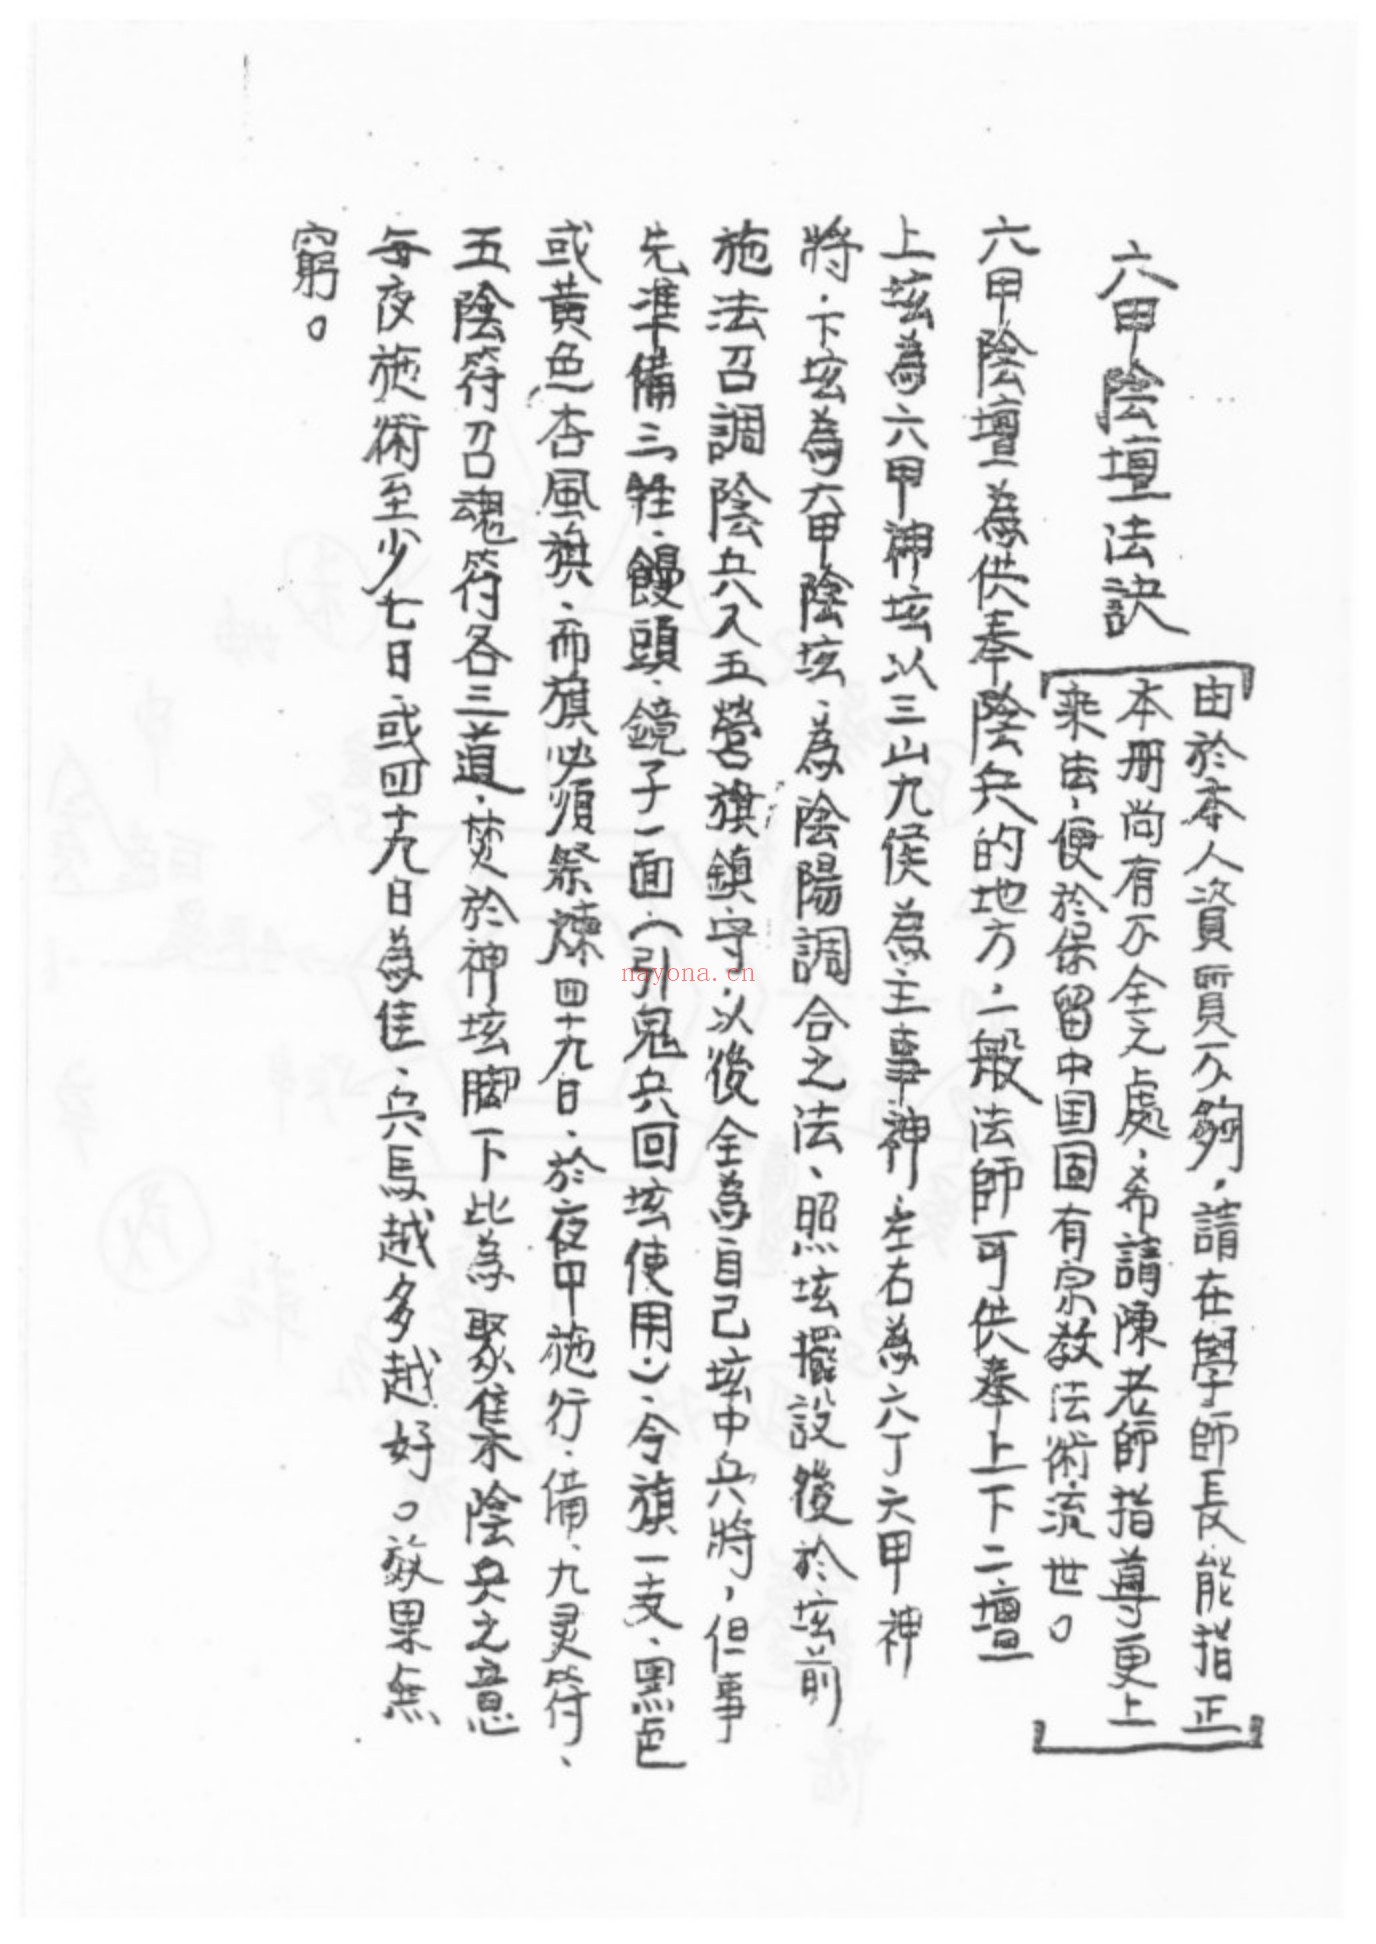 六甲陰壇法訣
由於本人資質不夠，請在學師長能指正
本册尚有不全之處，希請陳老師指導更上
乘法，便於保留中国固有宗教法術流世。
六甲陰壇為供奉陰兵的地方，一般法師可供奉上下二壇
上坛為六甲神坛以三山九侯為主事神，左右為六丁六甲神
將，下坛為六甲陰坛、為陰陽調合之法、照坛擺設後於坛前
施法召調陰兵入五營旗鎮守，以後全為自己坛中兵將，但事
先準備三牲、饅頭、鏡子一面、(引鬼兵回坛使用)、令旗一支、黑色
或黃色杏風旗、而旗必須祭煉四十九日、於夜中施行、備、九灵符、
五陰符召魂符各三道、焚於神坛脚下比為聚集木陰兵之意
每夜施術至少七日、或四十九日為佳、兵馬越多越好。效果無
窮。
nayona.cn